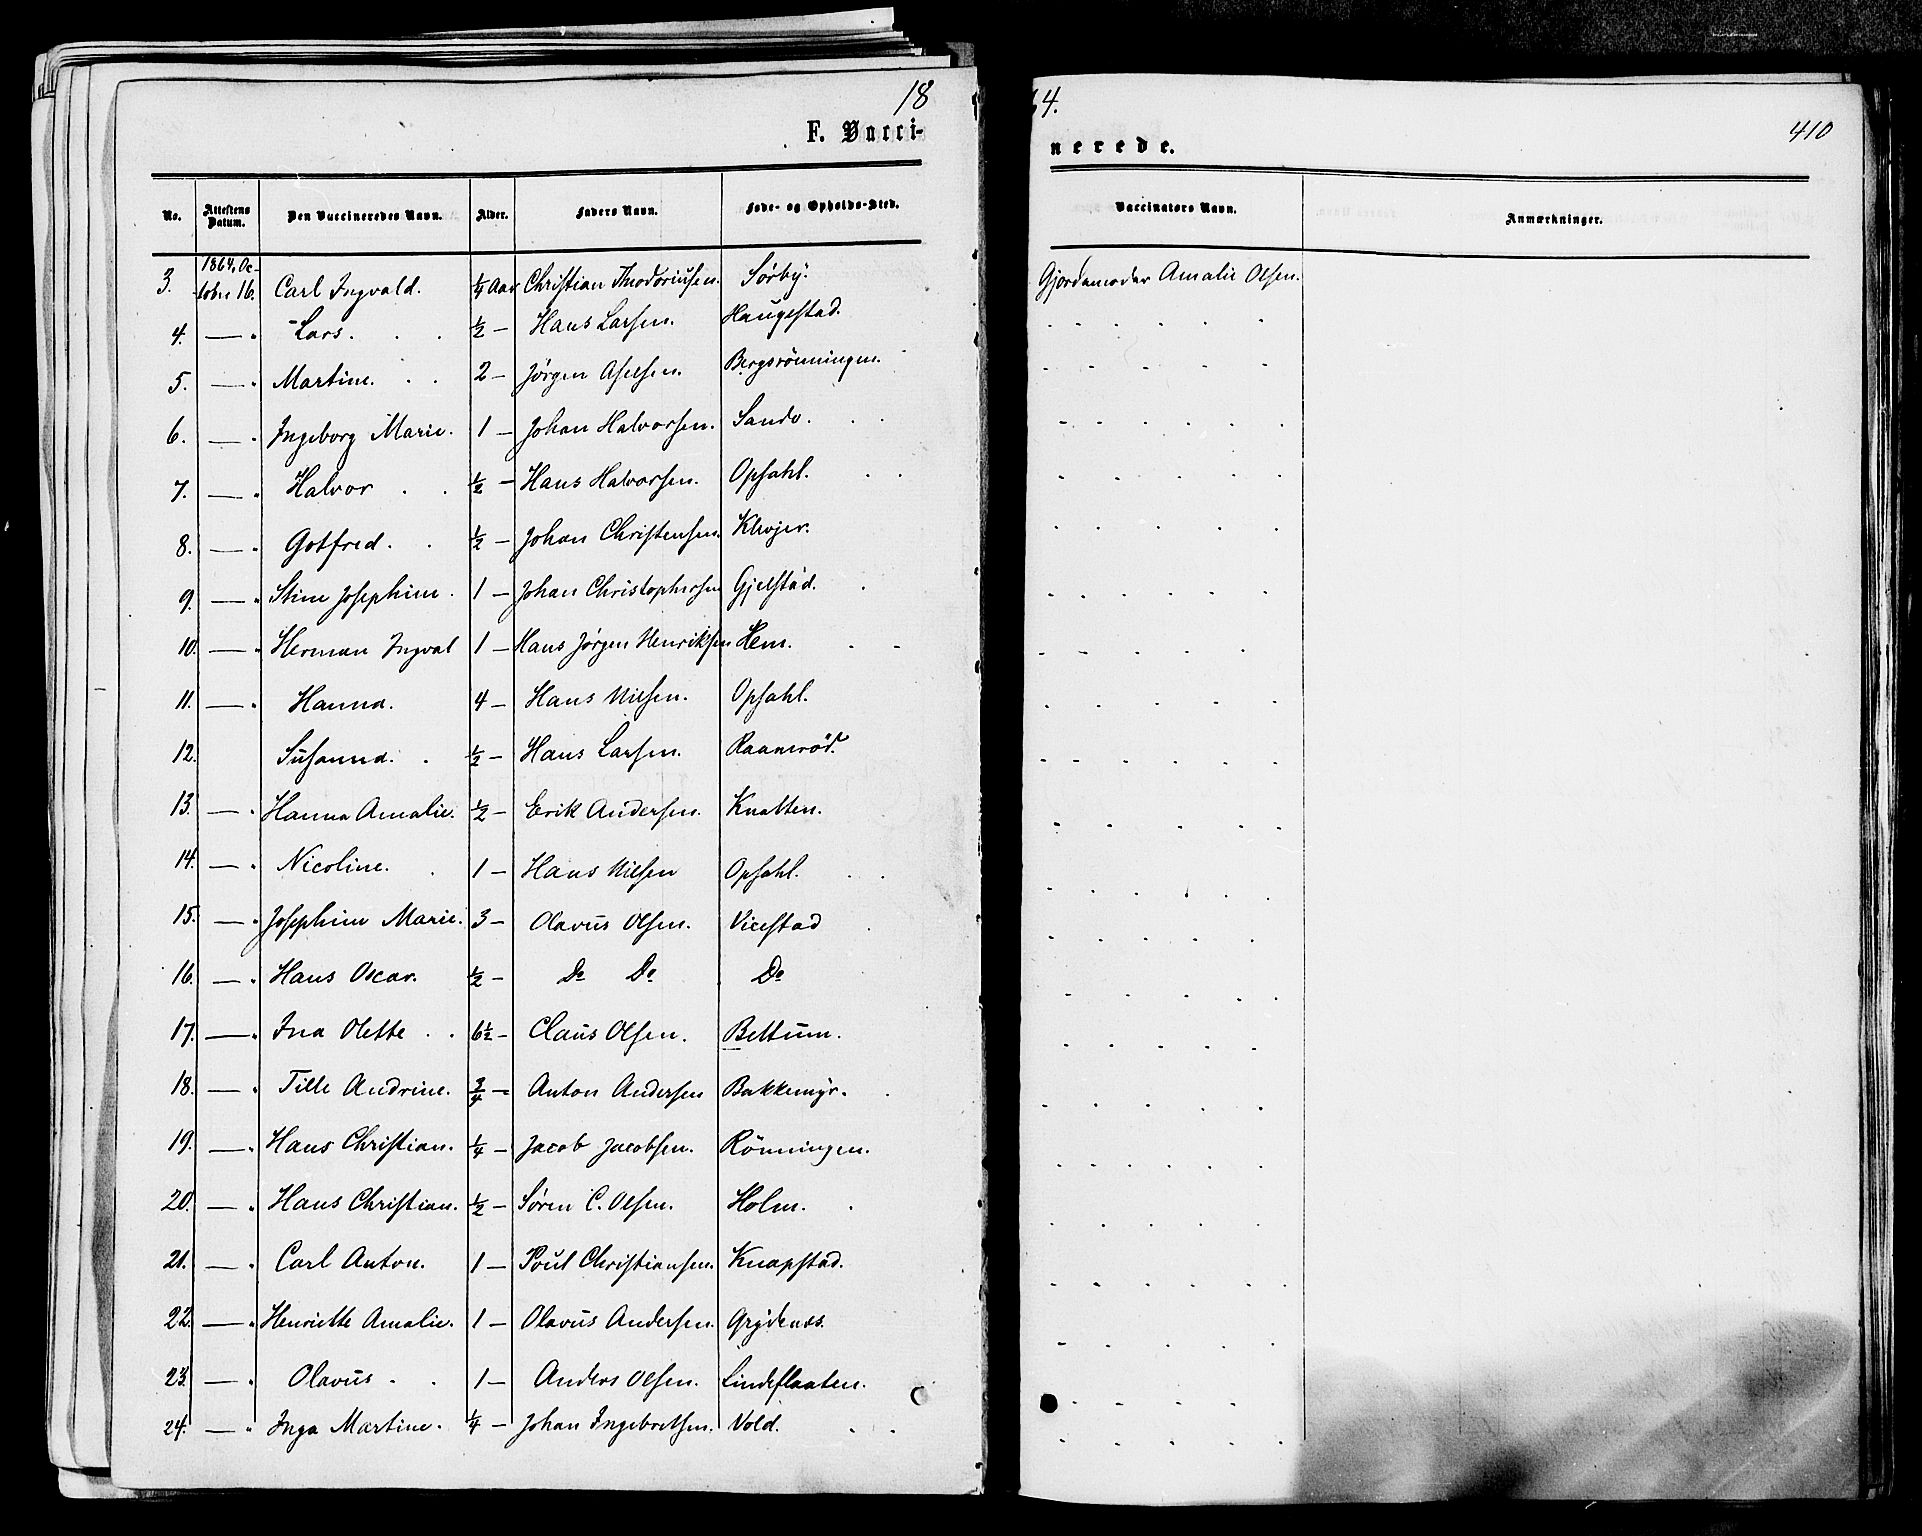 1864.
410
F. Vaccinerede.
No. Attestens Datum. Den Vaccineredes Navn. Alder. Faders Navn. Føde- og Opholds-Sted. Vaccinators Navn. Anmærkninger.
3. 1864, October 16. Carl Ingvald. 1/4 Aar Christian Theodoriusen. Sørby. Gjordemoder Amalie Olsen.
4. — " Lars. 1/2 — Hans Larsen. Haugestad.
5. — " Martine. 2 — Jörgen Axelsen. Bergsrönningen.
6. — " Ingeborg Marie. 1 — Johan Halvorsen. Sande.
7. — " Halvor 1/2 — Hans Halvorsen. Opsahl.
8. — " Gotfred. 1/2 — Johan Christensen. Klevjer.
9. — " Stine Josephine. 1 — Johan Christophersen Gjelstad.
10. — " Herman Ingval 1 — Hans Jörgen Henriksen Hem.
11. — " Hanna. 4 — Hans Nilsen. Opsahl.
12. Susanna. 1/2 — Hans Larsen. Raaneröd.
13. — " Hanna Amalie. 1/2 — Erik Andersen. Knatten.
14. — " Nicoline. 1 — Hans Nilsen Opsahl.
15. — " Josephine Marie. 3 — Olavus Olsen. Vicestad
16. — " Hans Oscar. 1/2 — Do Do Do
17. — " Ina Olette 6 1/2 — Claus Olsen. Bettum.
18. — " Tille Andrine. 3/4 — Anton Andersen Bakkemyr.
19. — " Hans Christian. 1/4 — Jacob Jacobsen. Rönningen.
20. — " Hans Christian. 1/2 — Sören C. Olsen. Holm.
21. — " Carl Anton. 1 — Poul Christiansen. Knapstad.
22. — " Henriette Amalie. 1 — Olavus Andersen. Grydenes.
23. — " Olavus 1 — Anders Olsen. Lindeflaaten.
24. — " Inga Martine. 1/4 — Johan Ingebretsen. Vold.